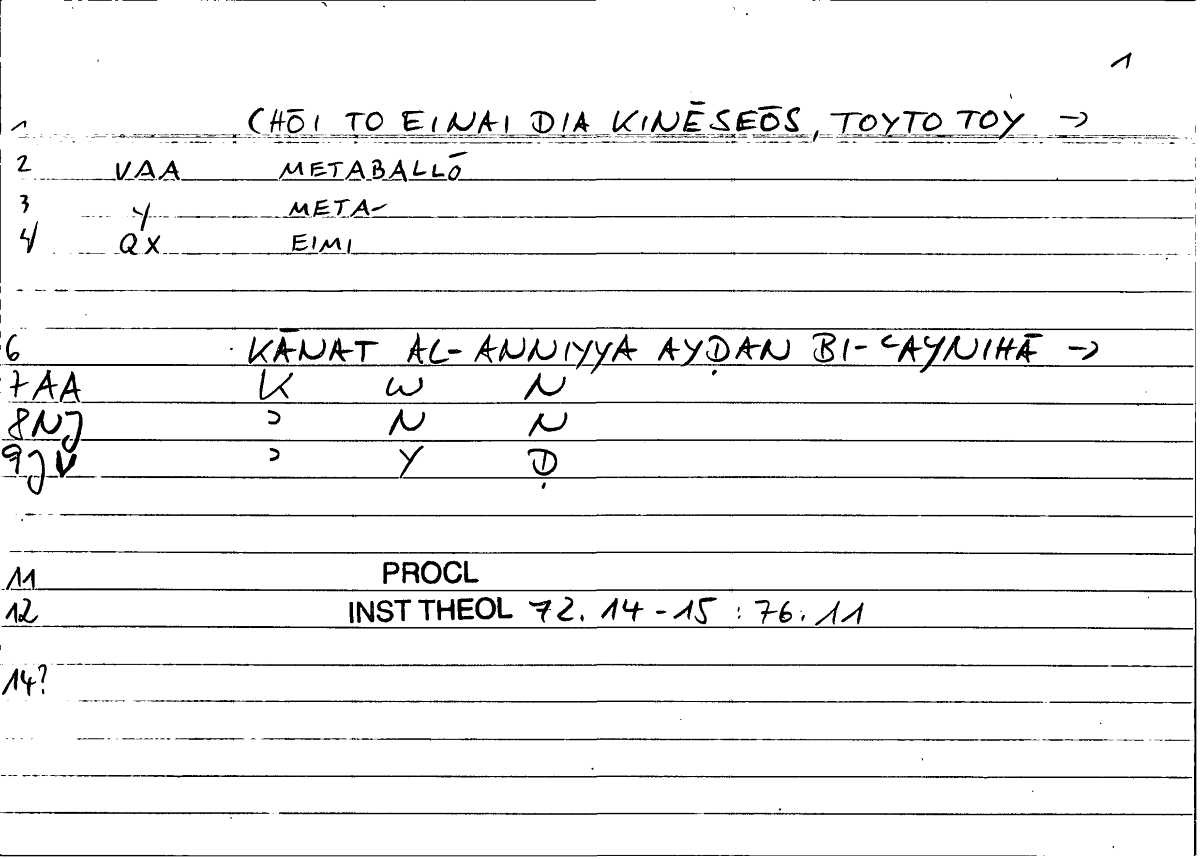 1
1 (HŌI TO EINAI DIA KINĒSEŌS, TOYTO TOY →
2 VAA METABALLŌ
3 Y META-
4 QX EIMI
6 KĀNAT AL-ANNIYYA AYḌAN BI-ʿAYNIHĀ →
7AA K W N
8NJ ʾ N N
9JV ʾ Y Ḍ
11 PROCL
12 INST THEOL 72. 14-15 : 76. 11
14?